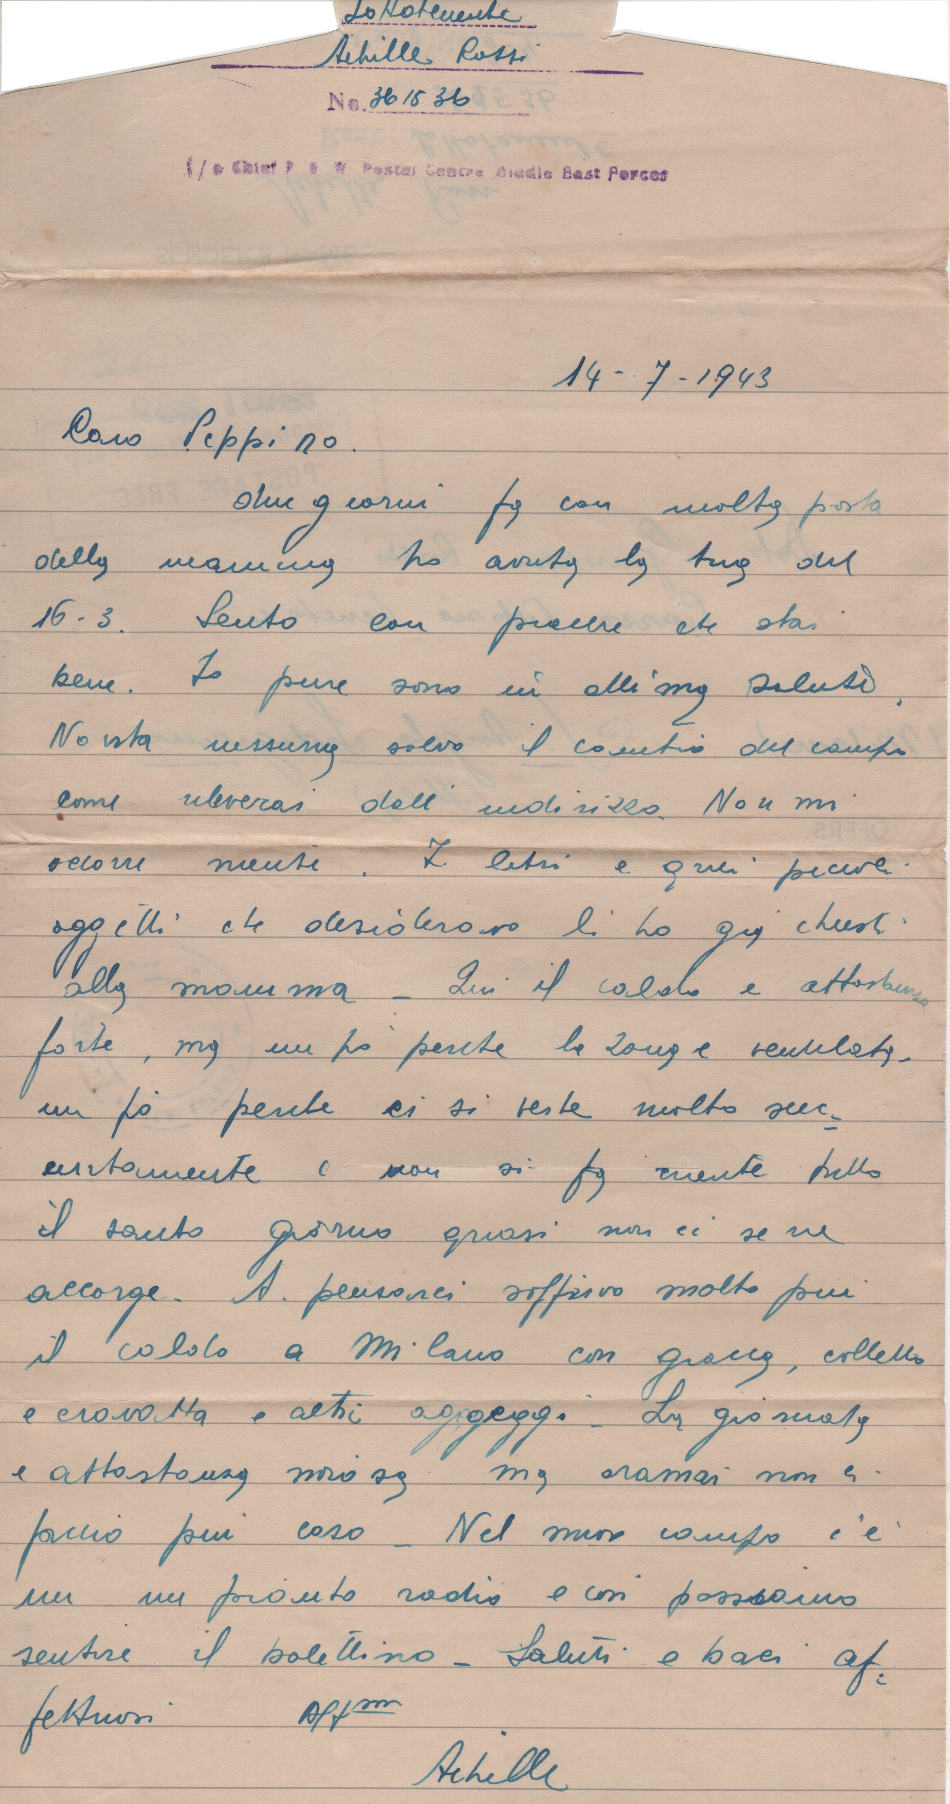 Sottotenente
Achille Rossi
No. 361536
c/o Chief P. O. W. Postal Centre Middle East Forces
14-7-1943
Caro Peppino.
due giorni fa con molta posta
della mamma ho avuta la tua del
16-3. Sento con piacere che stai
bene. Io pure sono in ottima salute.
Novita nessuna salvo il cambio del campo
come rileverai dall'indirizzo. Non mi
occorre niente. I libri e quei piccoli
oggetti che desideravo li ho già chiesti
alla mamma - Qui il caldo e abbastanza
forte, ma un pò perche la zona e ventilata,
un pò perche ci si veste molto suc=
cintamente e non si fa niente tutto
il santo giorno quasi non ci se ne
accorge. A pensarci soffrivo molto piu
il caldo a Milano con giacca, colletto
e cravatta e altri aggeggi - La giornata
e abbastanza noiosa ma oramai non ci
faccio piu caso - Nel nuovo campo c'è
un un pianto radio e cosi possiamo
sentire il bolettino - Saluti e baci af=
fettuosi Aff.mo
Achille